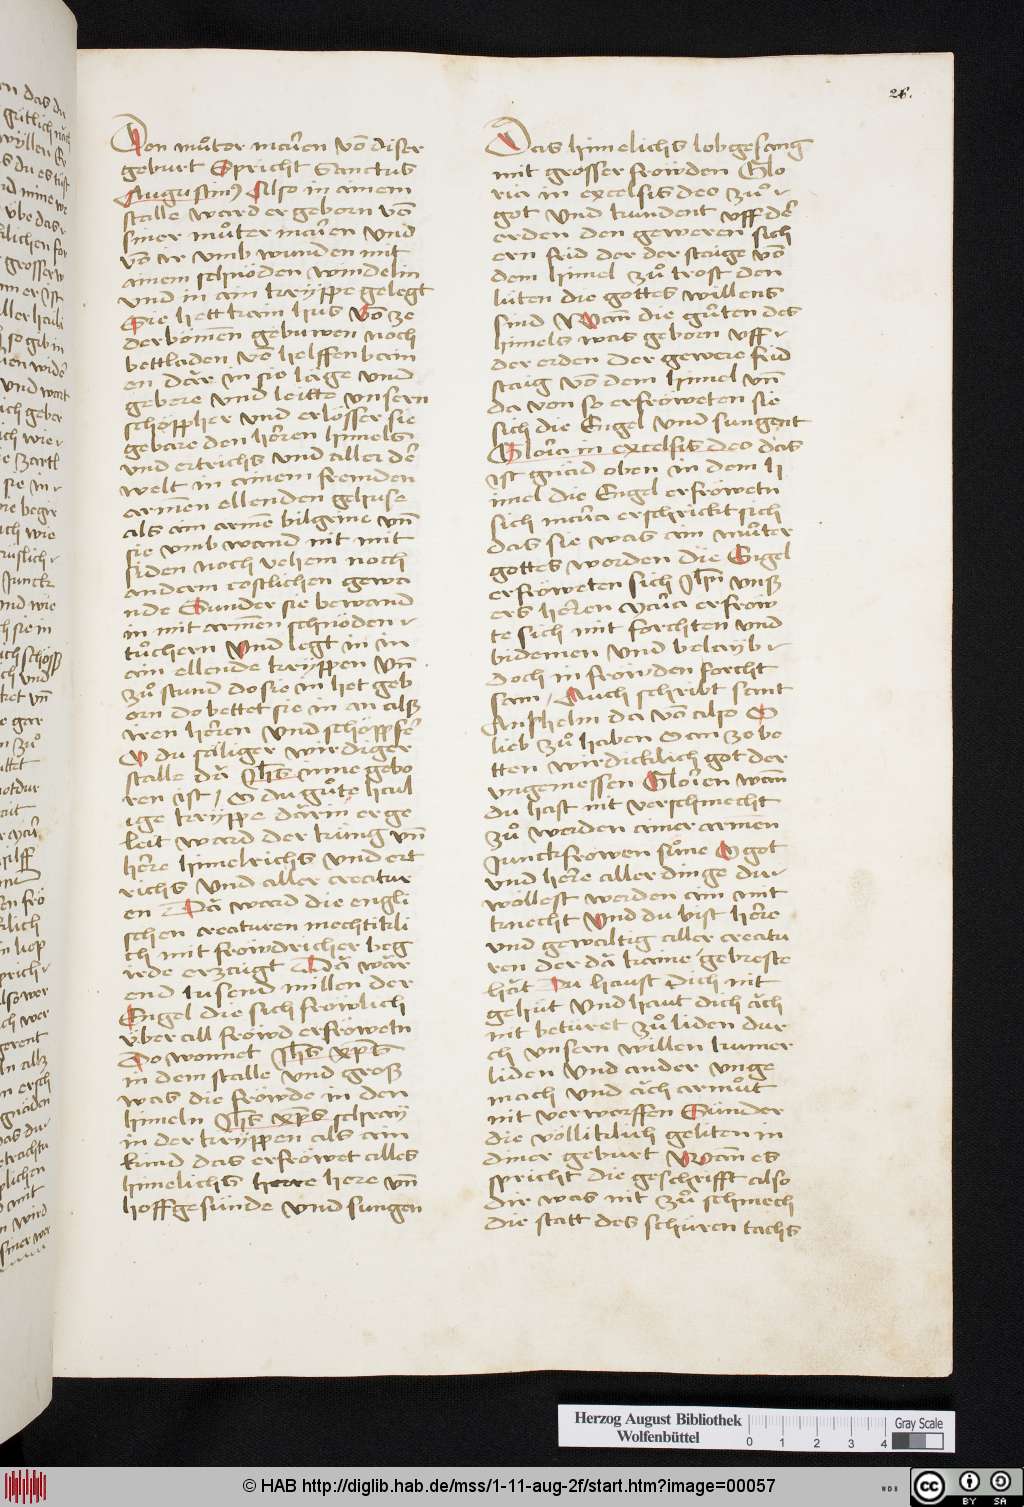 26.
Von můter marien vō diser
geburt Spricht Sanctus
Augustinus Also in ainem
stalle ward er geborn vō
siner mu̇ter marien vnd
vō ir vmb wunden mit
ainem schnöden windelin
vnd in ain krippe gelegt
Sie hett kain hus vō ze
derbömen gebuwen noch
bettladen vō helffenbain
en dār in sie lāge vnd
gebere vnd leitte vnsern
schöpher vnd erlösser sie
gebare den hēren himels
vnd ertrichs vnd aller der
welt in ainem fremden
armen ellenden gehuse
als ain armē bilgrine vn̄
sie vmb wand nit mit
siden noch vehem noch
andern costlichen gewa
nde Sunder sie bewand
in mit armen schnöden
tůchern Vnd legt in in
ain ellende krippen vn̄
zů stund do sie in het geb
orn do bettet sie in an als
iren hēren vnd schöpfer
O du säliger wirdiger
stalle dā Jhs inne gebo
ren ist / O du gůte hail
ige krippe dārin er ge
leit ward der küng vn̄
hēre himelrichs vnd ert
richs vnd aller creatur
en Dā ward die engli
schen creaturen mechtikli
ch mit fröwdricher beg
irde erzaugt Dā wār
end tusend millen der
Engel die sich frölich
über all fröwd erfröweten
Do wonnet Jhs xps
in dem stalle vnd gros
was die fröwde in den
himeln Jhs xps schray
in der krippen als ain
kind das erfröwet alles
himelichs herre here vn̄
hoffgesinde vnd sungen
Das himelichs lobgesang
mit grosser fröwden Glo
ria in excelsis deo zů
got vnd kundent vff der
erden den geweren sich
ern frid der der staige vō
dem himel zů trost den
lüten die gottes willens
sind Wan̄ die gůten des
himels was geborn vff
der erden Der gewere frid
staig vō dem himel vn̄
da von so erfröweten sie
sich die Engel vnd sungent
Gloria in excelsis deo das
ist gnäd oben in dem h
imel die Engel erfröwetn
sich maria erschrickt sich
das sie was ain mu̇ter
gottes worden die Engel
erfröweten sich Jhm vns
ers heren Maria erfröw
te sich mit forchten vnd
bidemen vnd belayb
doch in fröwden forcht
sam / Auch schribt sant
Anshelm da vō also O
lieb zů haben O an zo be
tten wirdicklich got der
vngemessen Glorien wan̄
du hast nit verschmecht
zů werden ainer armen
Junckfrowen su̇ne O got
vnd here aller dinge du
wöllest werden ain mit
knecht Vnd du bist here
vnd gewaltig aller creatu
ren der dā kaine gebreste
hāt Du haust Dich nit
gehüt Vnd haut dich āch
nit beturet zů liden dur
ch vnsern willen kumer
liden Vnd ander vnge
mach vnd āch armůt
nit verworffen Sünder
die völliklich geliten in
diner geburt Wan̄ es
spricht die geschrifft also
dir was nit zů schmech
die statt des schüren tachs
Herzog August Bibliothek
Wolfenbüttel
0 1 2 3 4
Gray Scale
© HAB http://diglib.hab.de/mss/1-11-aug-2f/start.htm?image=00057
WDB
CC BY SA